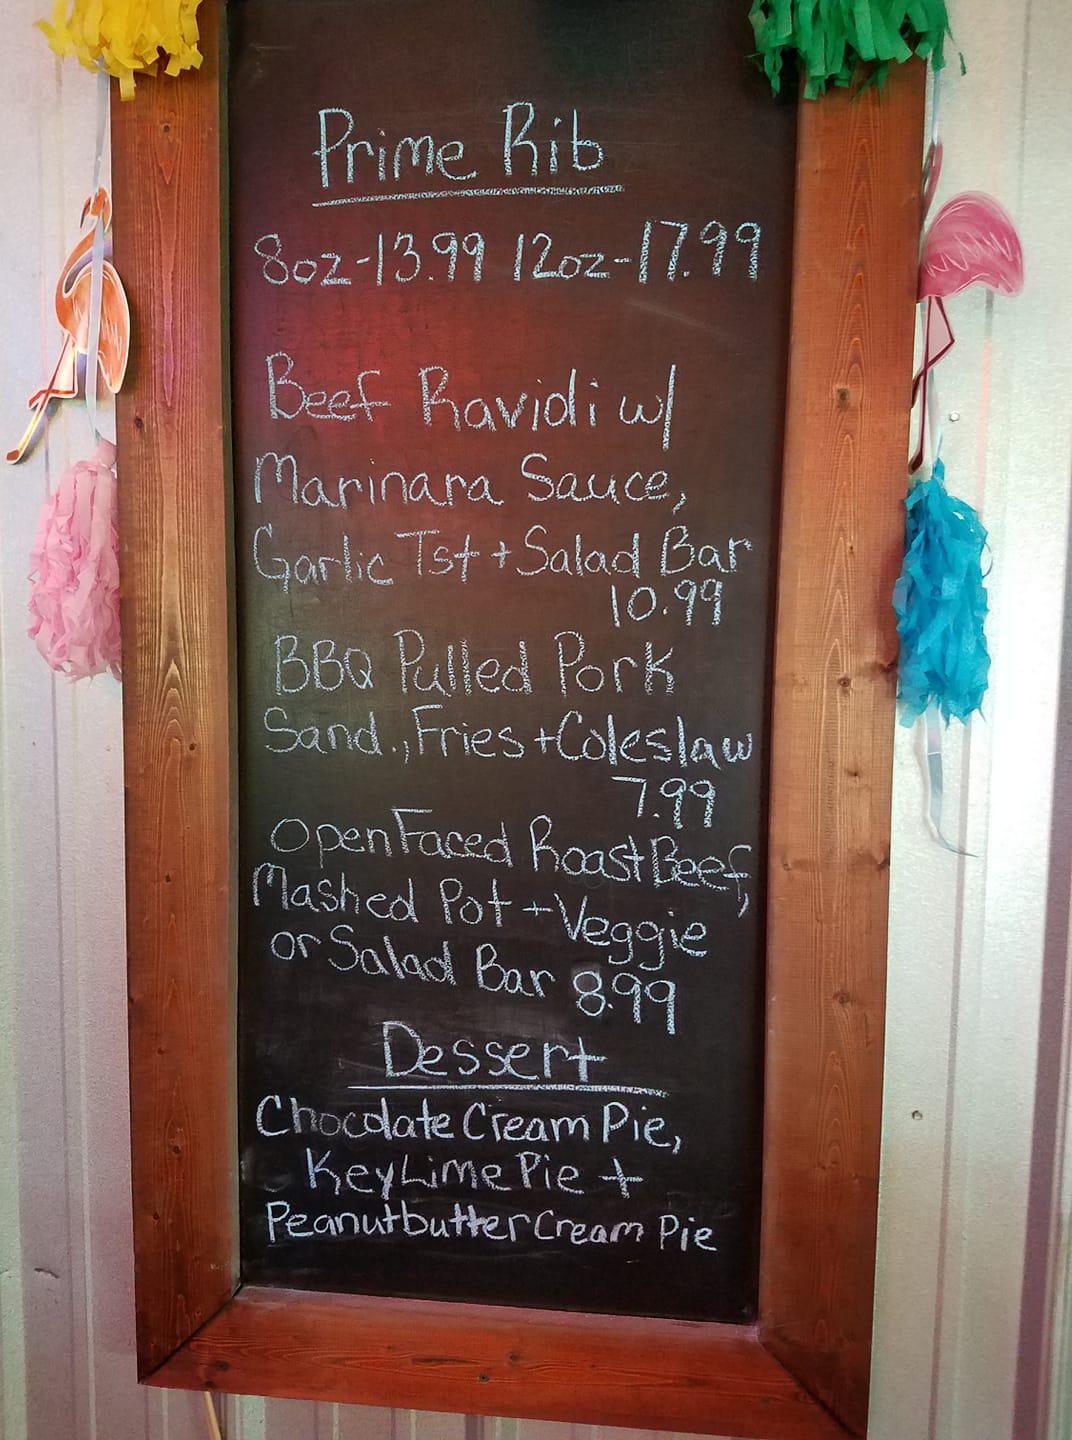 Prime Rib
8oz-13.99 12oz-17.99
Beef Ravioli w/
Marinara Sauce,
Garlic Tst + Salad Bar
10.99
BBQ Pulled Pork
Sand., Fries + Coleslaw
7.99
Open Faced Roast Beef,
Mashed Pot + Veggie
or Salad Bar 8.99
Dessert
Chocolate Cream Pie,
Key Lime Pie +
Peanutbutter Cream Pie